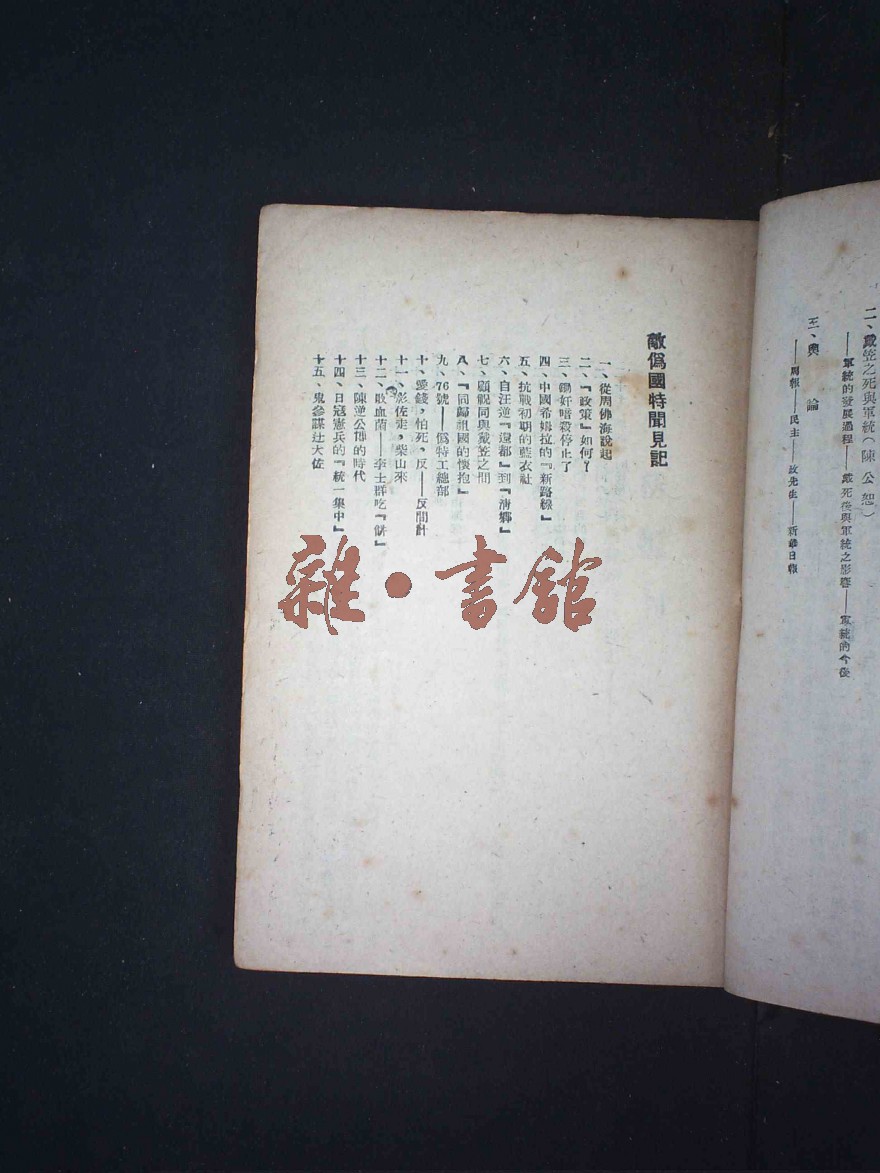 二、戴笠之死與軍統(陳公恕)
——軍統的發展過程——戴死後與軍統之影響——軍統的今後
三、輿　論
——周報——民主——文先生——新華日報
敵僞國特聞見記
一、從周佛海說起
二、『政策』如何？
三、鋤奸暗殺停止了
四、中國希姆拉的『新路線』
五、抗戰初期的藍衣社
六、自汪逆『還都』到『清鄉』
七、顧祝同與戴笠之間
八、『囘歸祖國的懷抱』
九、76號——僞特工總部
十、愛錢，怕死，反——反間計
十一、影佐走，柴山來
十二、敗血菌——李士群吃『餅』
十三、陳逆公博的時代
十四、日寇憲兵的『統一集中』
十五、鬼參謀辻大佐
雜·書館